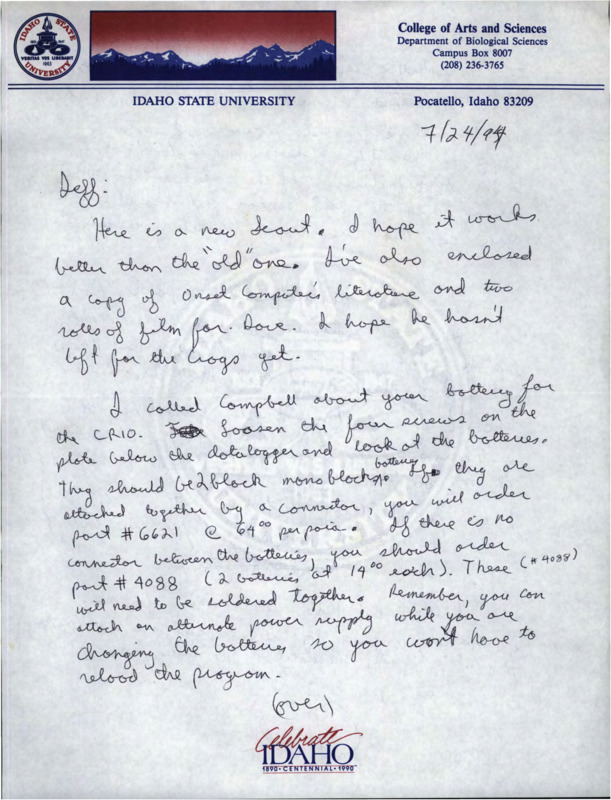 IDAHO STATE
VERITAS VOS LIBERABIT
UNIVERSITY
College of Arts and Sciences
Department of Biological Sciences
Campus Box 8007
(208) 236-3765
IDAHO STATE UNIVERSITY
Pocatello, Idaho 83209
7/24/94
Jeff:
Here is a new Scout. I hope it works
better than the "old" one. I've also enclosed
a copy of Onset Computer's literature and two
roles of film for Dave. I hope he hasn't
left for the Crags yet.
I called Campbell about your battery for
the CR10. Loosen the four screws on the
plate below the datalogger and look at the batteries.
They should be 2 block monoblock battery. If they are
attached together by a connector, you will order
part #6621 @ 6400 per pair. If there is no
connector between the batteries, you should order
part #4088 (2 batteries at 1400 each). These (#4088)
will need to be soldered together. Remember, you can
attach an alternate power supply while you are
changing the batteries so you won't have to
reload the program.
(over)
Celebrate
IDAHO
1890 • CENTENNIAL • 1990